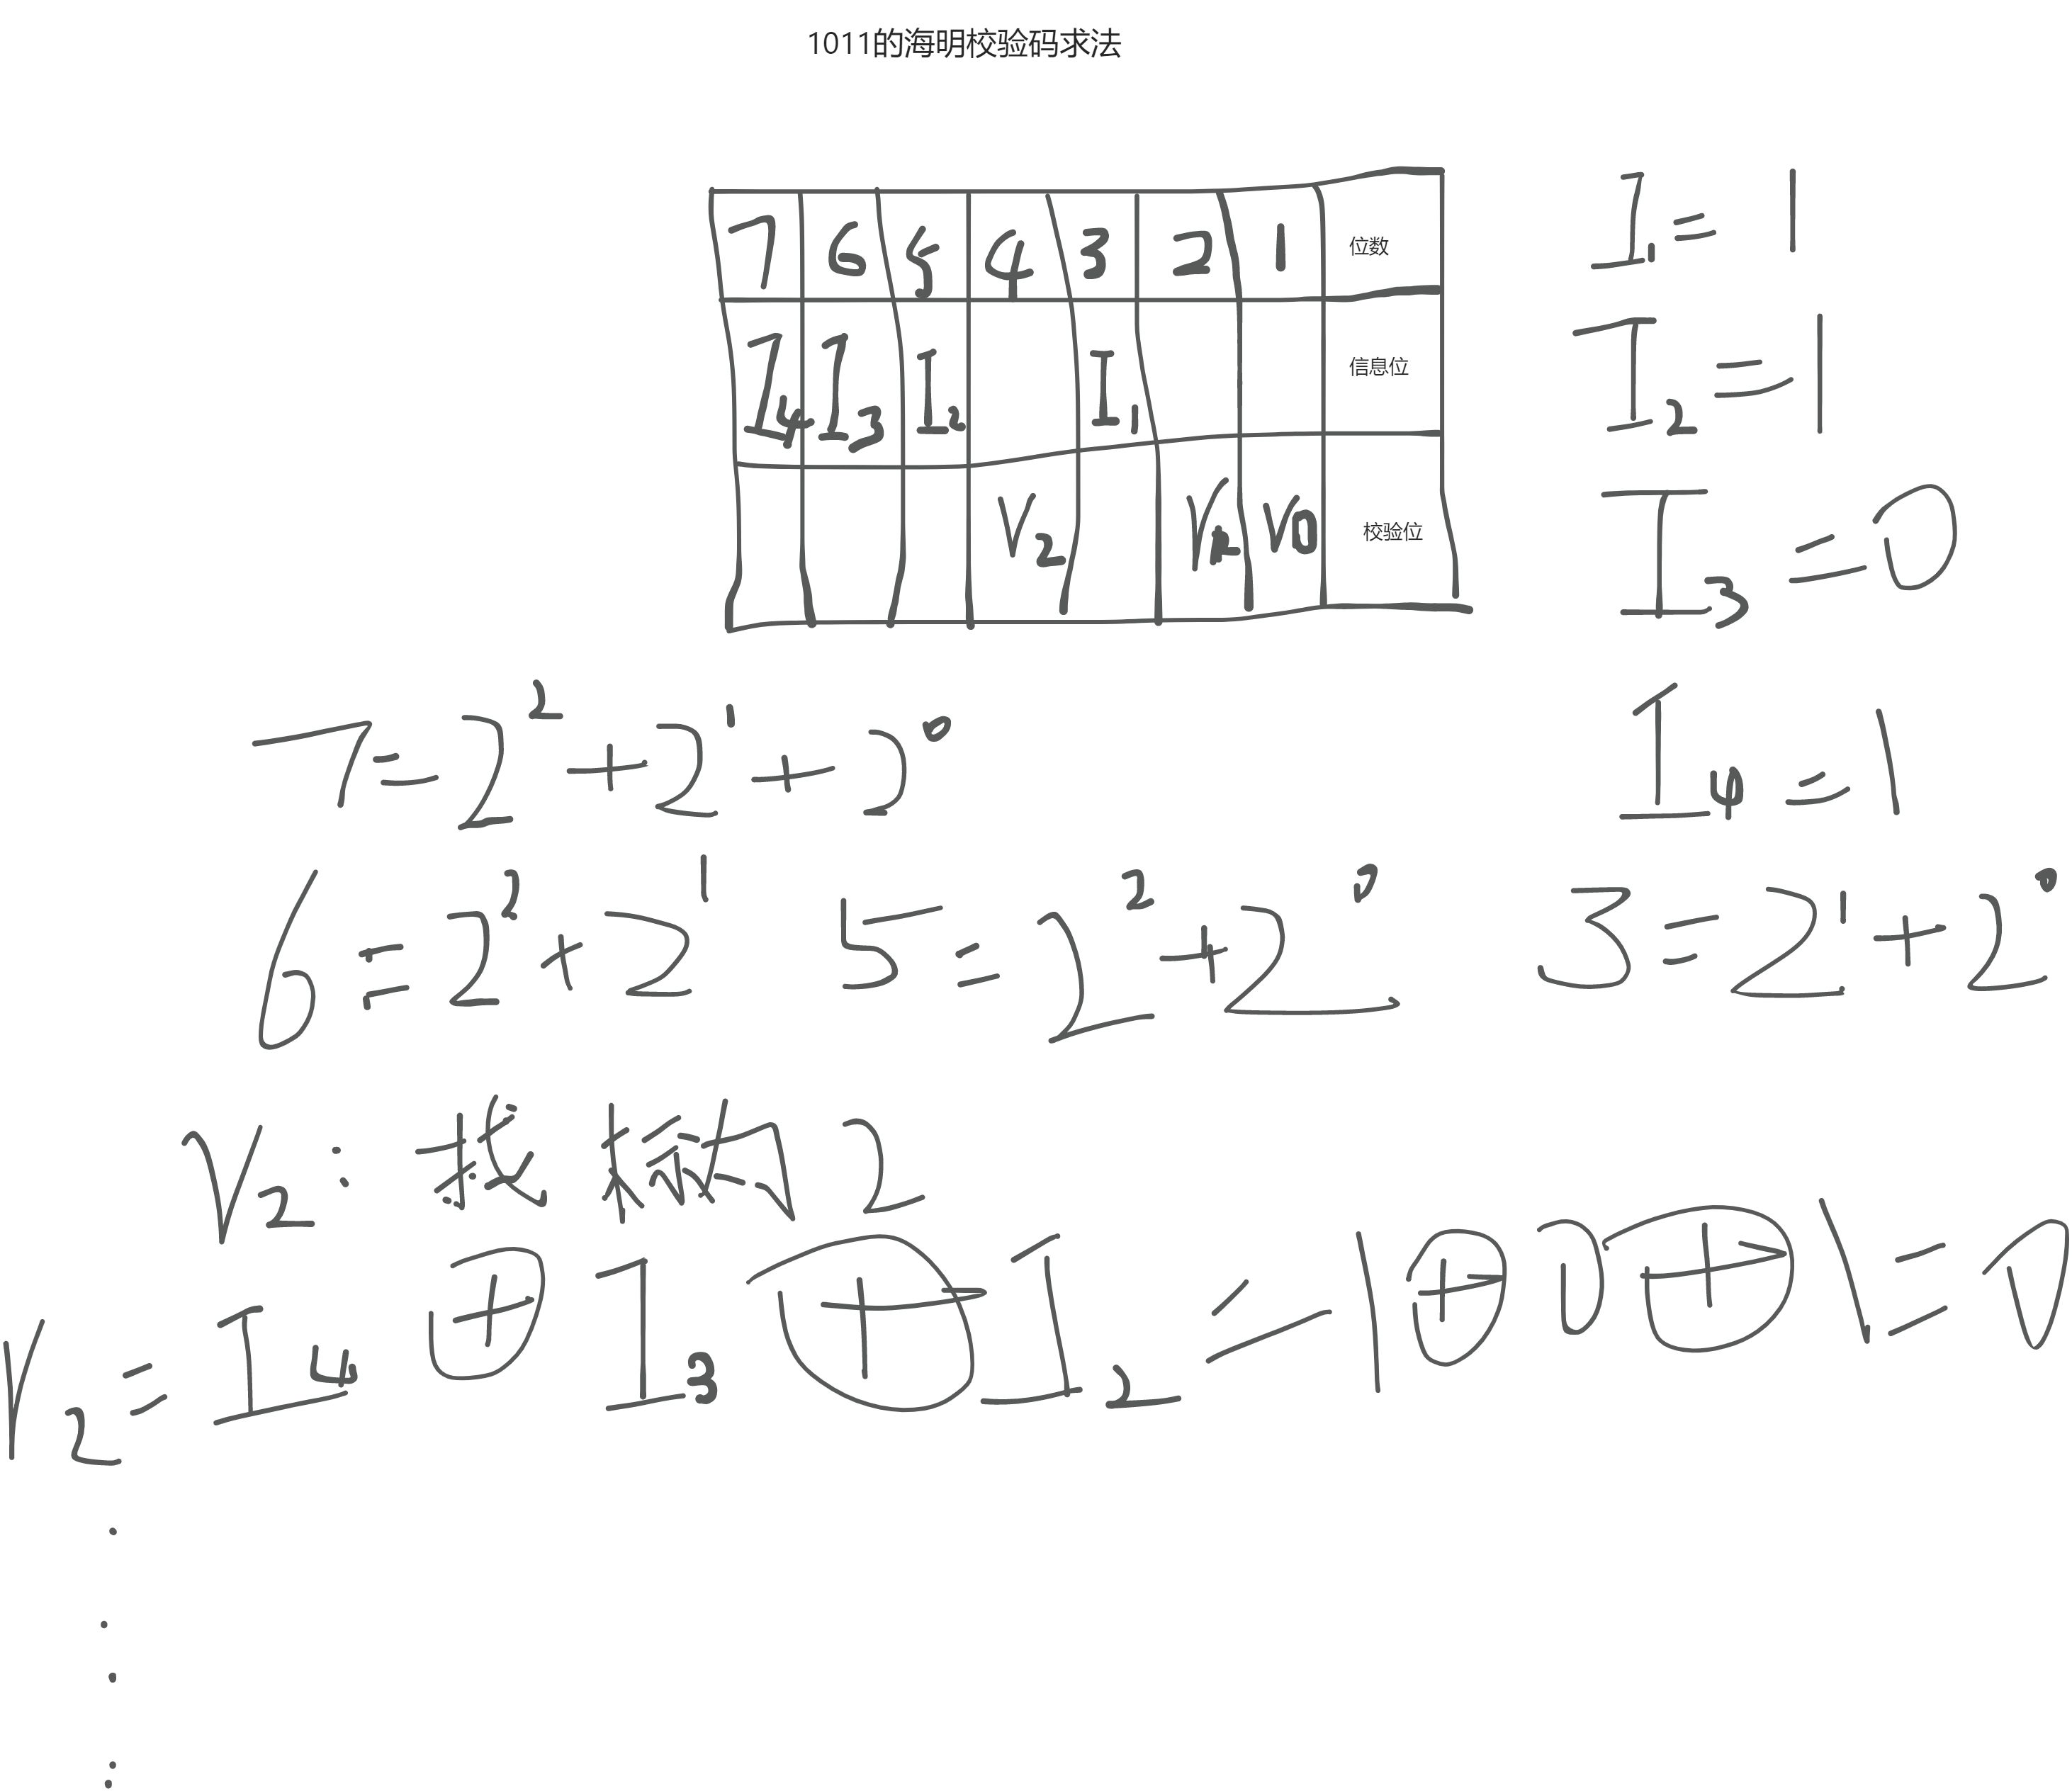 1011的海明校验码求法
7 6 5 4 3 2 1 位数
I₄ I₃ I₂ I₁ 信息位
r₂ r₀ 校验位
I₁ = 1
I₂ = 1
I₃ = 0
I₄ = 1
7 = 2² + 2¹ + 2⁰
6 = 2² + 2¹ 5 = 2² + 2⁰ 3 = 2¹ + 2⁰
r₂: 找 标为 2
r₂ = I₄ ⊕ I₃ ⊕ I₂ = 1 ⊕ 0 ⊕ 1 = 0